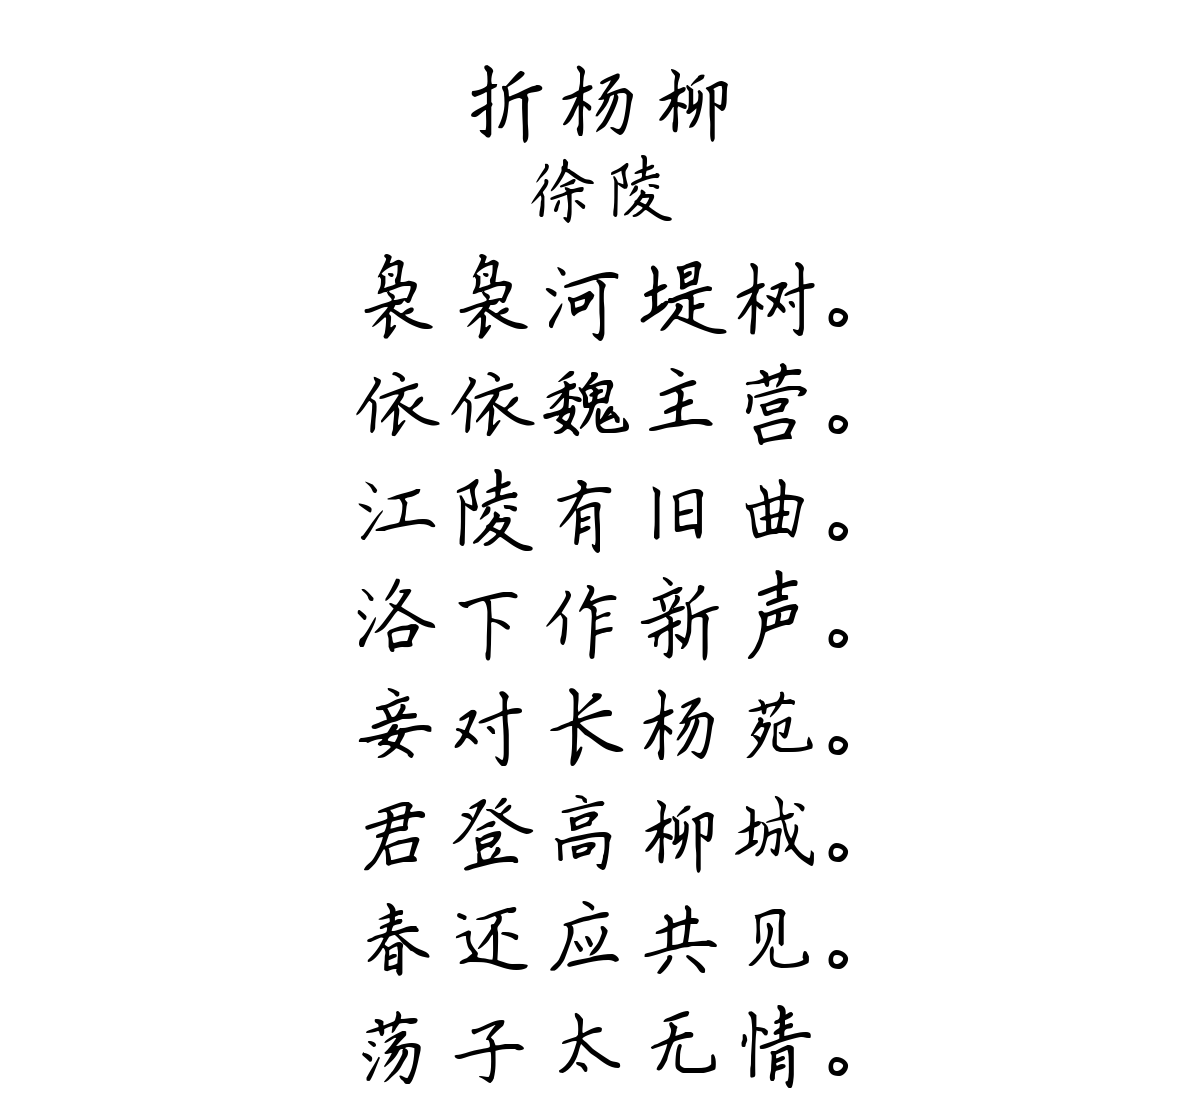 折杨柳
徐陵
袅袅河堤树。
依依魏主营。
江陵有旧曲。
洛下作新声。
妾对长杨苑。
君登高柳城。
春还应共见。
荡子太无情。